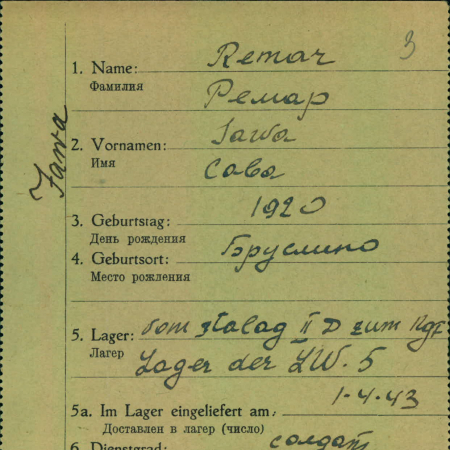 3
1. Name: Remar
Фамилия Ремар
Jawa
2. Vornamen: Jawa
Имя Сава
3. Geburtstag: 1920
День рождения
4. Geburtsort: Бруслино
Место рождения
5. Lager: vom Stalag II D zum Kgf
Лагер Lager der LW. 5
5a. Im Lager eingeliefert am: 1-4-43
Доставлен в лагер (число)
6. Dienstgrad: солдат